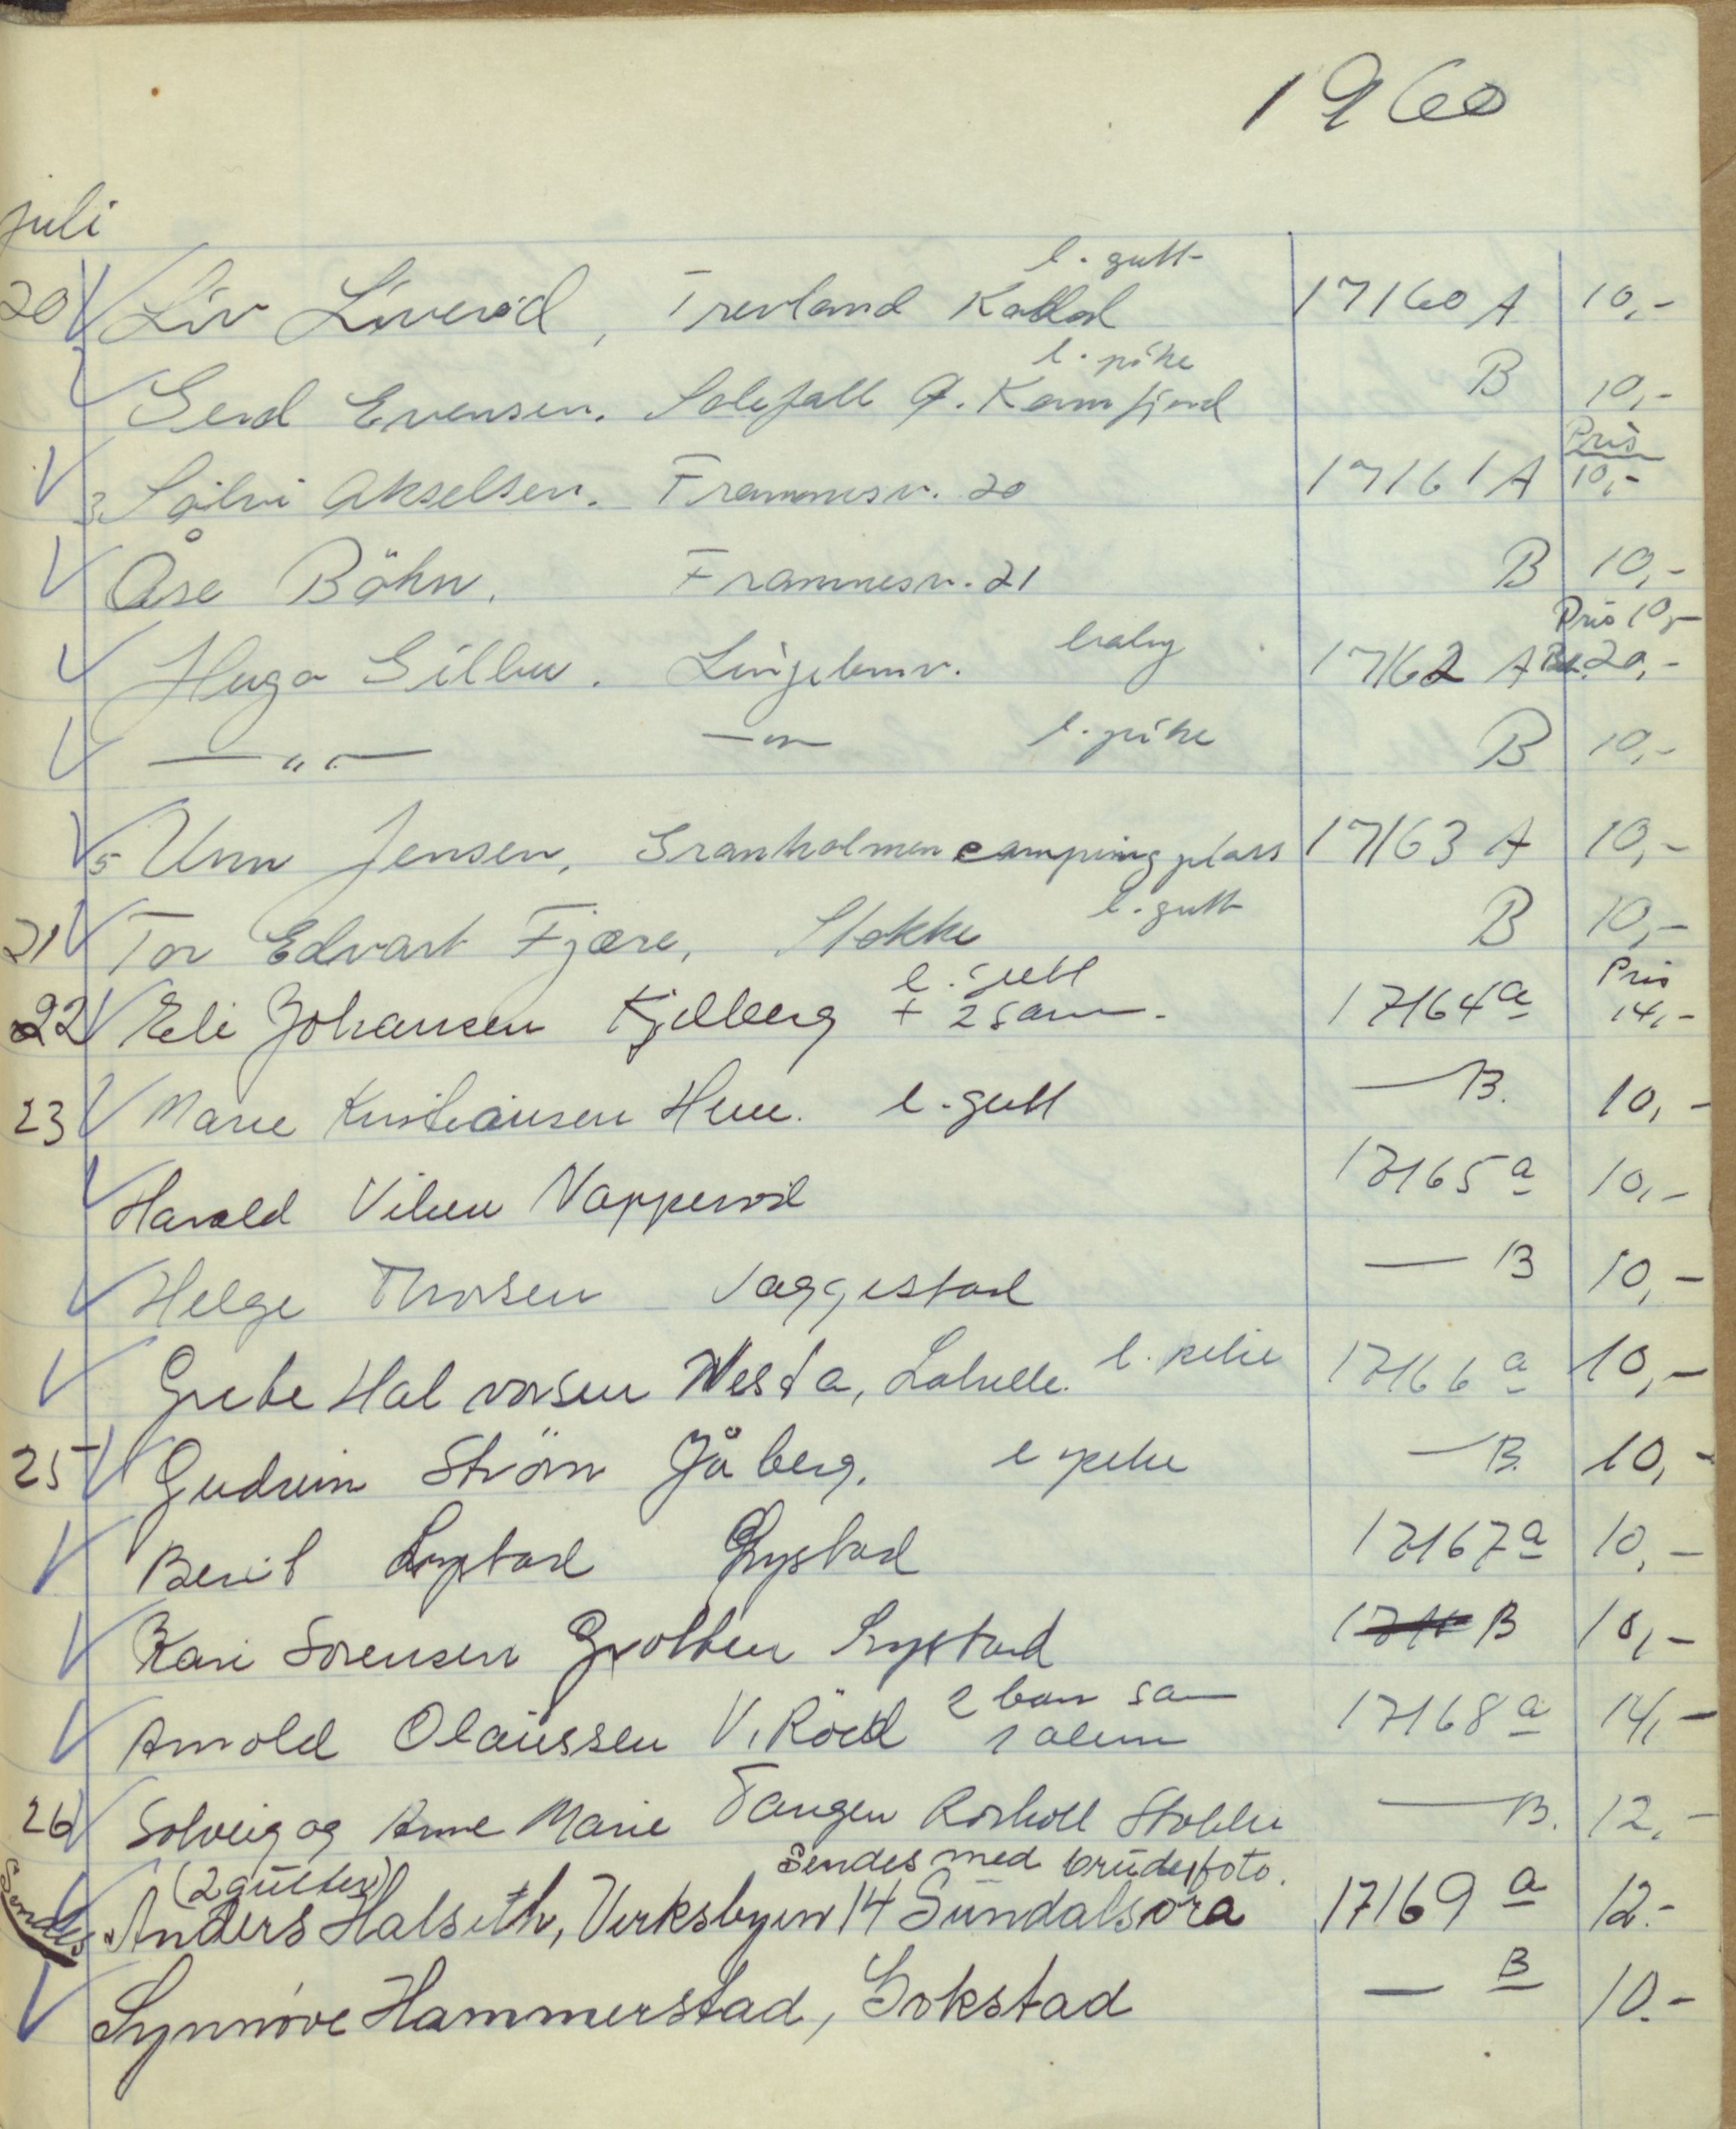 1960
juli
l. gutt
20 Liv Liverød, Trevland Kodal 17160 A 10,-
l. pike
Gerd Evensen. Solefall p. Kamfjord B 10,-
Pris
3 Sølvi Akselsen. Framnesv. 20 17161 A 10,-
Åse Böhn. Framnesv. 21 B 10,-
Pris 10,-
Hugo Gilbu. baby 17162 A 20,-
— " — — " — l. pike B 10,-
5 Unn Jensen, Granholmen campingplass 17163 A 10,-
21 Tor Edvart Fjære, Stokke l. gutt B 10,-
l. gutt Pris
22 Eli Johansen Kjelberg + 2 sam. 17164 a 14,-
23 Marie Kristiansen Hem. l. gutt — B. 10,-
Harald Virhen Napperød 17165 a 10,-
Helge Thorsen Vaggestad — B 10,-
Grete Halvorsen Westa, Lahelle. l. pike 17166 a 10,-
25 Gudrun Strøm Jåberg. l pike — B. 10,-
Berit Lystad Lystad 17167 a 10,-
Kari Sørensen Grotten Lystad B 10,-
2 barn sam
Arnold Olaussen V. Röd 1 alene 17168 a 14,-
26 Solveig og Anne Marie Tangen Stokke — B. 12,-
(2 gutter) Sendes med brudefoto.
Sendes Anders Halseth, Verksbyen 14 Sundalsøra 17169 a 12.-
Synnøve Hammerstad, Gokstad — B 10.-